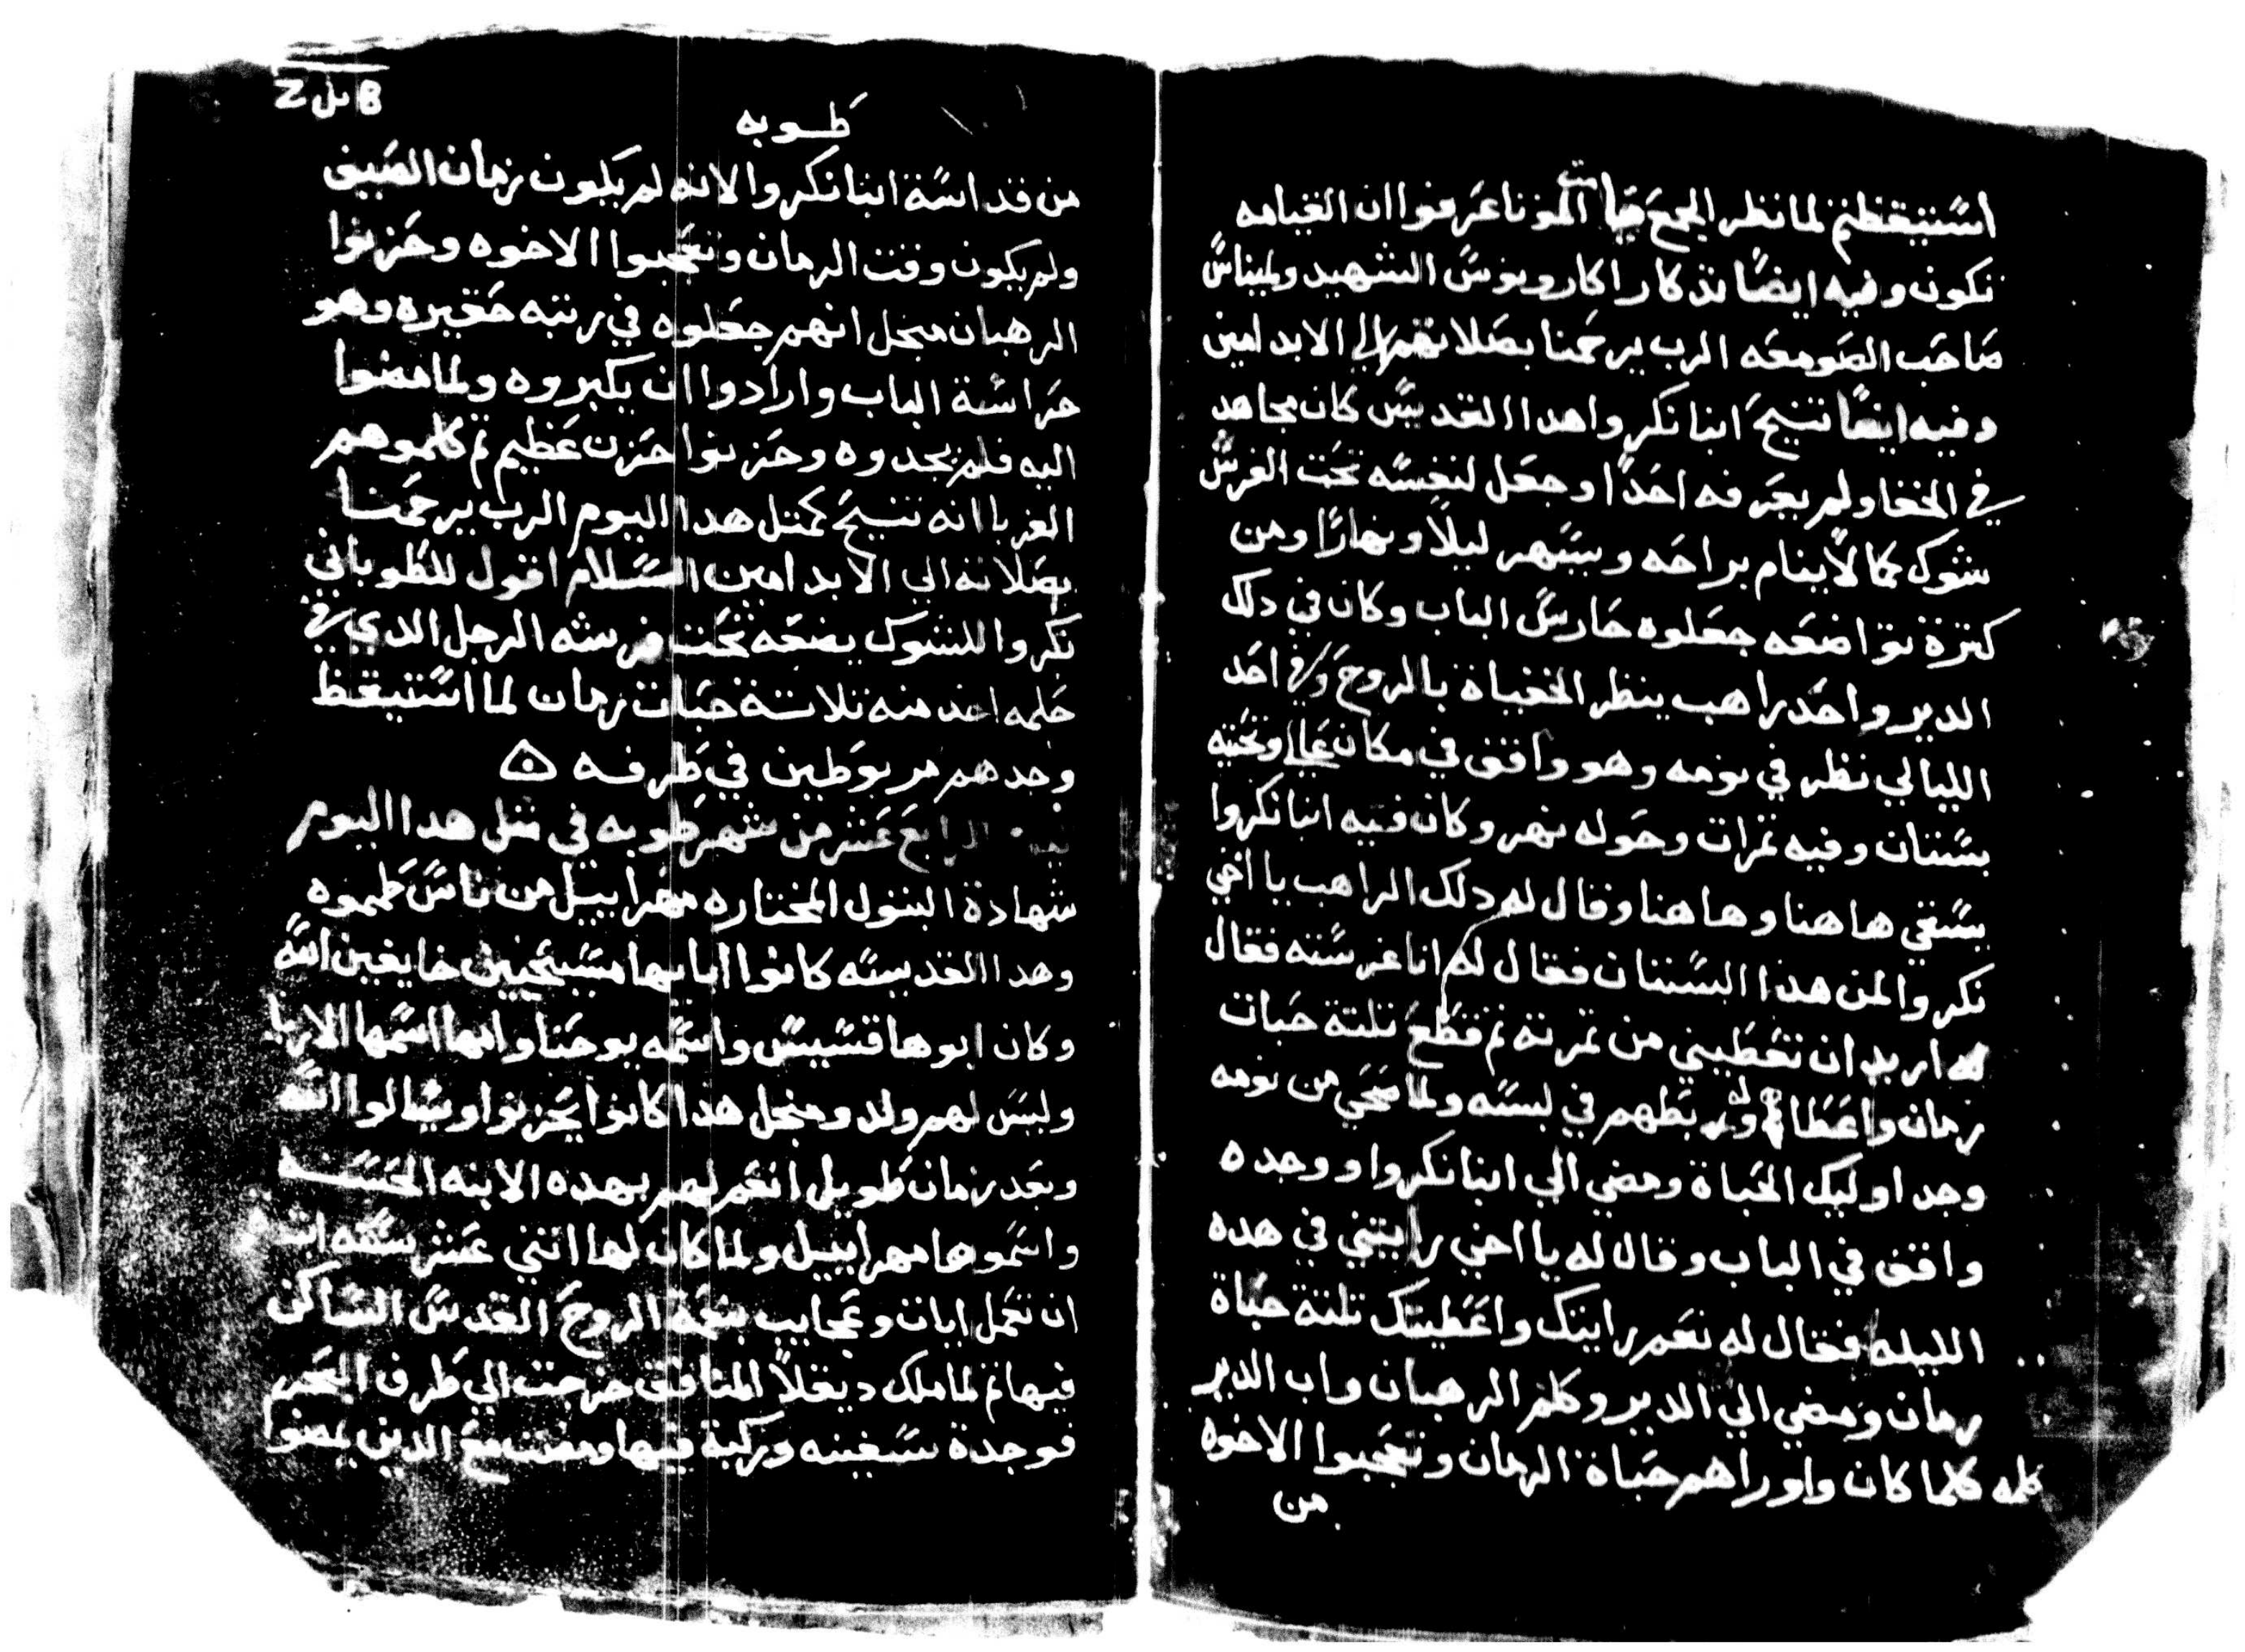 استيقظتم لما نظر الجمع قيامت الموتا عرفوا ان القيامه
تكون وفيه ايضًا تذكار اكاروبوس الشهيد وليناس
صاحب الصومعه الرب يرحمنا بصلاتهم الي الابد امين
وفيه ايضًا تنيح انبا نكروا هدا القديس كان مجاهد
في الخفا ولم يعرفه احدًا وجعل لنفسه تحت الفرش
شوك كما لا ينام براحه ويسهر ليلاً ونهارًا ومن
كترة تواضعه جعلوه حارس الباب وكان في دلك
الدير واحد راهب ينظر الخفياة بالروح وفي احد
الليالي نظر في نومه وهو واقف في مكان عالي وتحته
بستان وفيه تمرات وحوله نهر وكان فيه انبا نكروا
يسقي هاهنا وهاهنا وقال له دلك الراهب يا اخي
نكروا لمن هدا البستان فقال له انا غرسته فقال
له اريد ان تعطيني من تمرته تم قطع تلتة حبات
رمان واعطاهم له وربطهم في لبسه ولما صحي من نومه
وجد اوليك الحباة ومضي الي انبا نكروا ووجده
واقف في الباب وقال له يا اخي رايتني في هده
الليله فقال له نعم رايتك واعطيتك تلتة حباة
رمان ومضي الي الدير وكلم الرهبان واب الدير
كلمه كلما كان واوراهم حباة الرمان وتعجبوا الاخوه
من
طوبه
من قداسة انبا نكروا لانه لم يكون زمان الصيف
ولم يكون وقت الرمان وتعجبوا الاخوه وحزنوا
الرهبان منجل انهم جعلوه في رتبه حقيره وهو
حراسة الباب وارادوا ان يكبروه ولما مضوا
اليه فلم يجدوه وحزنوا حزن عظيم تم كلموهم
الغربا انه تنيح كمتل هدا اليوم الرب يرحمنا
بصلاته الي الابد امين السلام اقول للطوباني
نكروا للشوك يضعه تحت فرشه الرجل الدي في
حلمه اخد منه تلاتة حبات رمان لما استيقظ
وجدهم مربوطين في طرفه
الرابع عشر من شهر طوبه في متل هدا اليوم
شهادة البتول المختاره مهراييل من ناس طموه
وهدا القديسه كانوا اباها مسيحيين خايفين الله
وكان ابوها قسيس واسمه يوحنا وامها اسمها الاريا
وليس لهم ولد ومنجل هدا كانوا يحزنوا ويسالوا الله
وبعد زمان طويل انعم لهم بهده الابنه الحسنه
واسموها مهراييل ولما كان لها اتني عشر سنه ابتد
ان تعمل ايات وعجايب بنعمة الروح القدس الساكن
فيها تم لما ملك ديقلا المنافق خرجت الي طرف البحر
فوجدة سفينه وركبة فيها ومضت مع الدين يمضوا